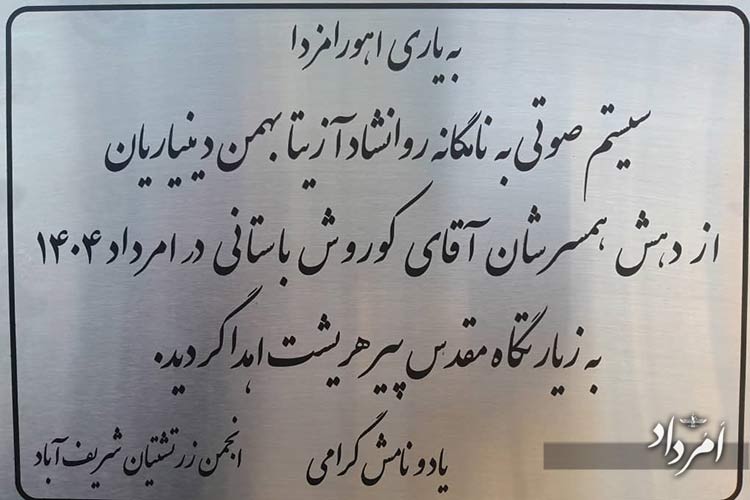 به یاری اهورامزدا
سیستم صوتی به نامگانه روانشاد آزیتا بهمن دینیاریان
از دهش همسرشان آقای کوروش باستانی در امرداد ۱۴۰۴
به زیارتگاه مقدس پیر هریشت اهدا گردید.
یاد و نامش گرامی
انجمن زرتشتیان شریف آباد
اَمُرداد